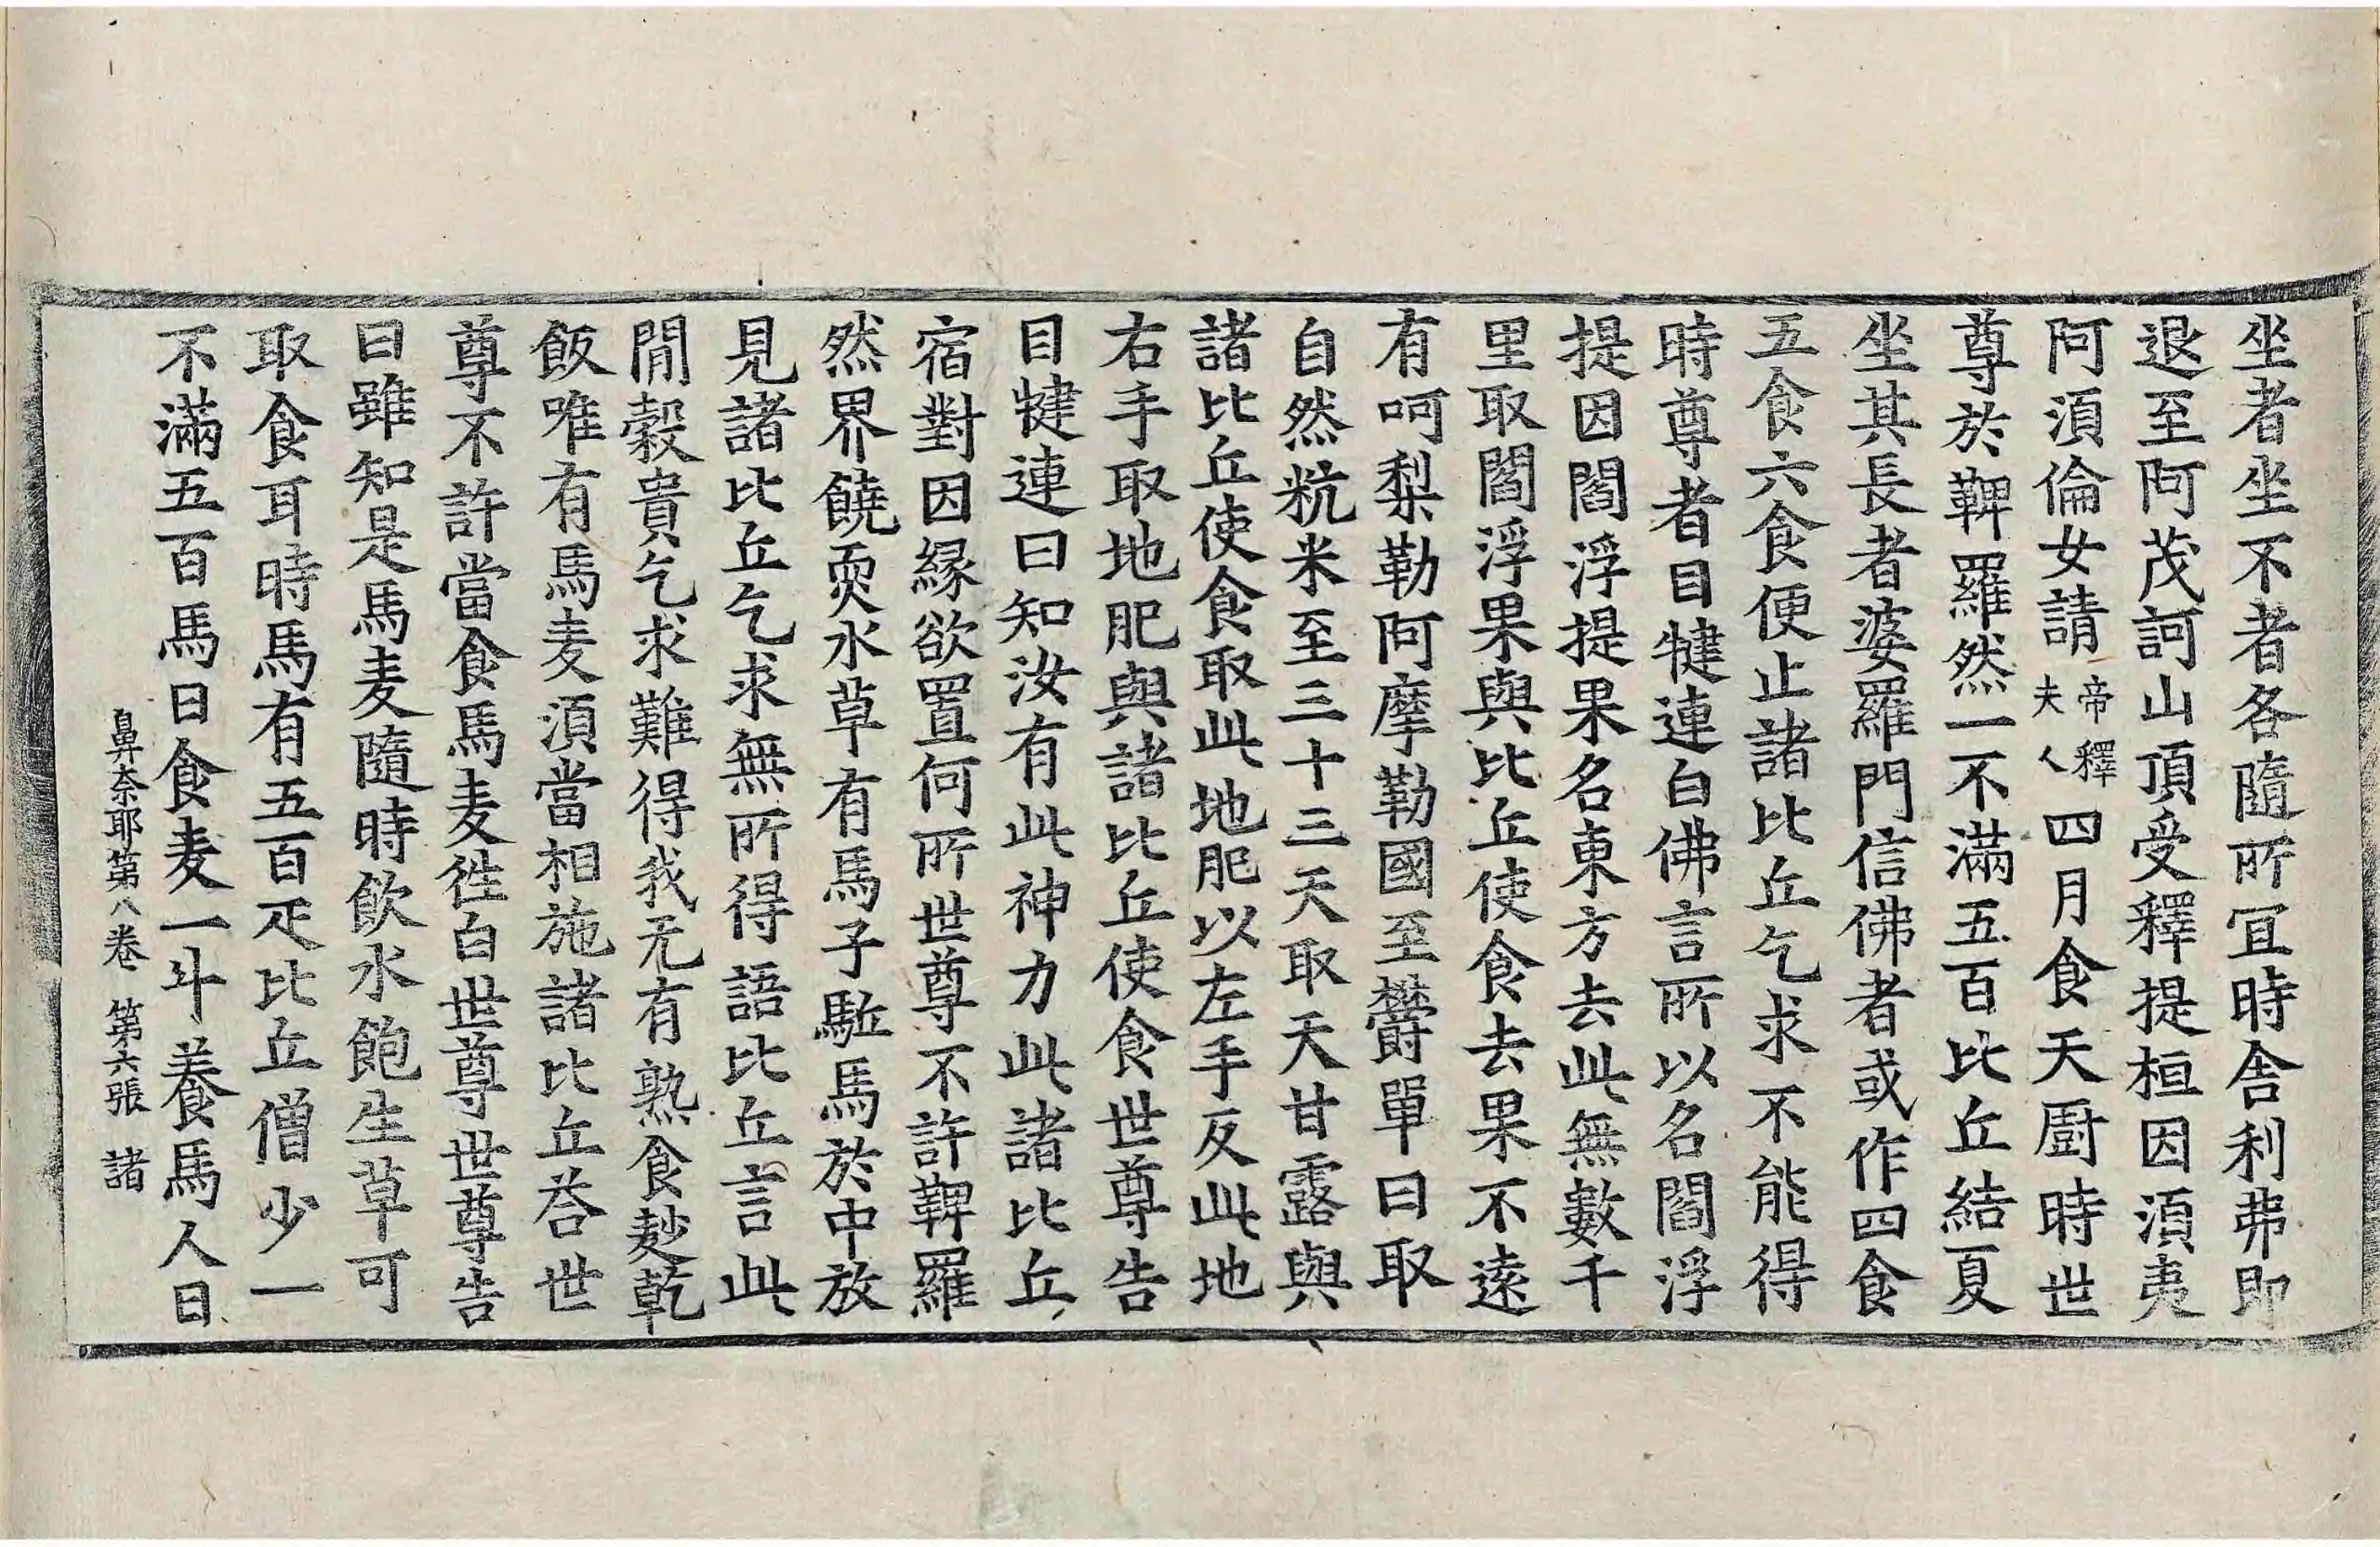 坐者坐不者各隨所冝時舎利弗即
退至阿茂訶山頂受釋提桓因湏夷
阿湏倫女請帝釋夫人四月食天厨時世
尊於鞞羅然一不滿五百比丘結夏
坐其長者婆羅門信佛者或作四食
五食六食便止諸比丘乞求不能得
時尊者目犍連白佛言所以名閻浮
提因閻浮提果名東方去此無數千
里取閻浮果與比丘使食去果不遠
有呵梨勒阿摩勒國至欝單曰取
自然粇米至三十三天取天甘露與
諸比丘使食取此地肥以左手反此地
右手取地肥與諸比丘使食世尊告
目犍連曰知汝有此神力此諸比丘
宿對因縁欲置何所世尊不許鞞羅
然界饒耎水草有馬子駈馬於中放
見諸比丘乞求無所得語比丘言此
閒穀貴乞求難得我无有熟食麨乾
飯唯有馬麦湏當相施諸比丘荅世
尊不許當食馬麦徃白世尊世尊告
曰雖知是馬麦隨時飲水飽生草可
取食耳時馬有五百疋比丘僧少一
不滿五百馬日食麦一斗養馬人日
鼻奈耶第八卷 第六張 諸